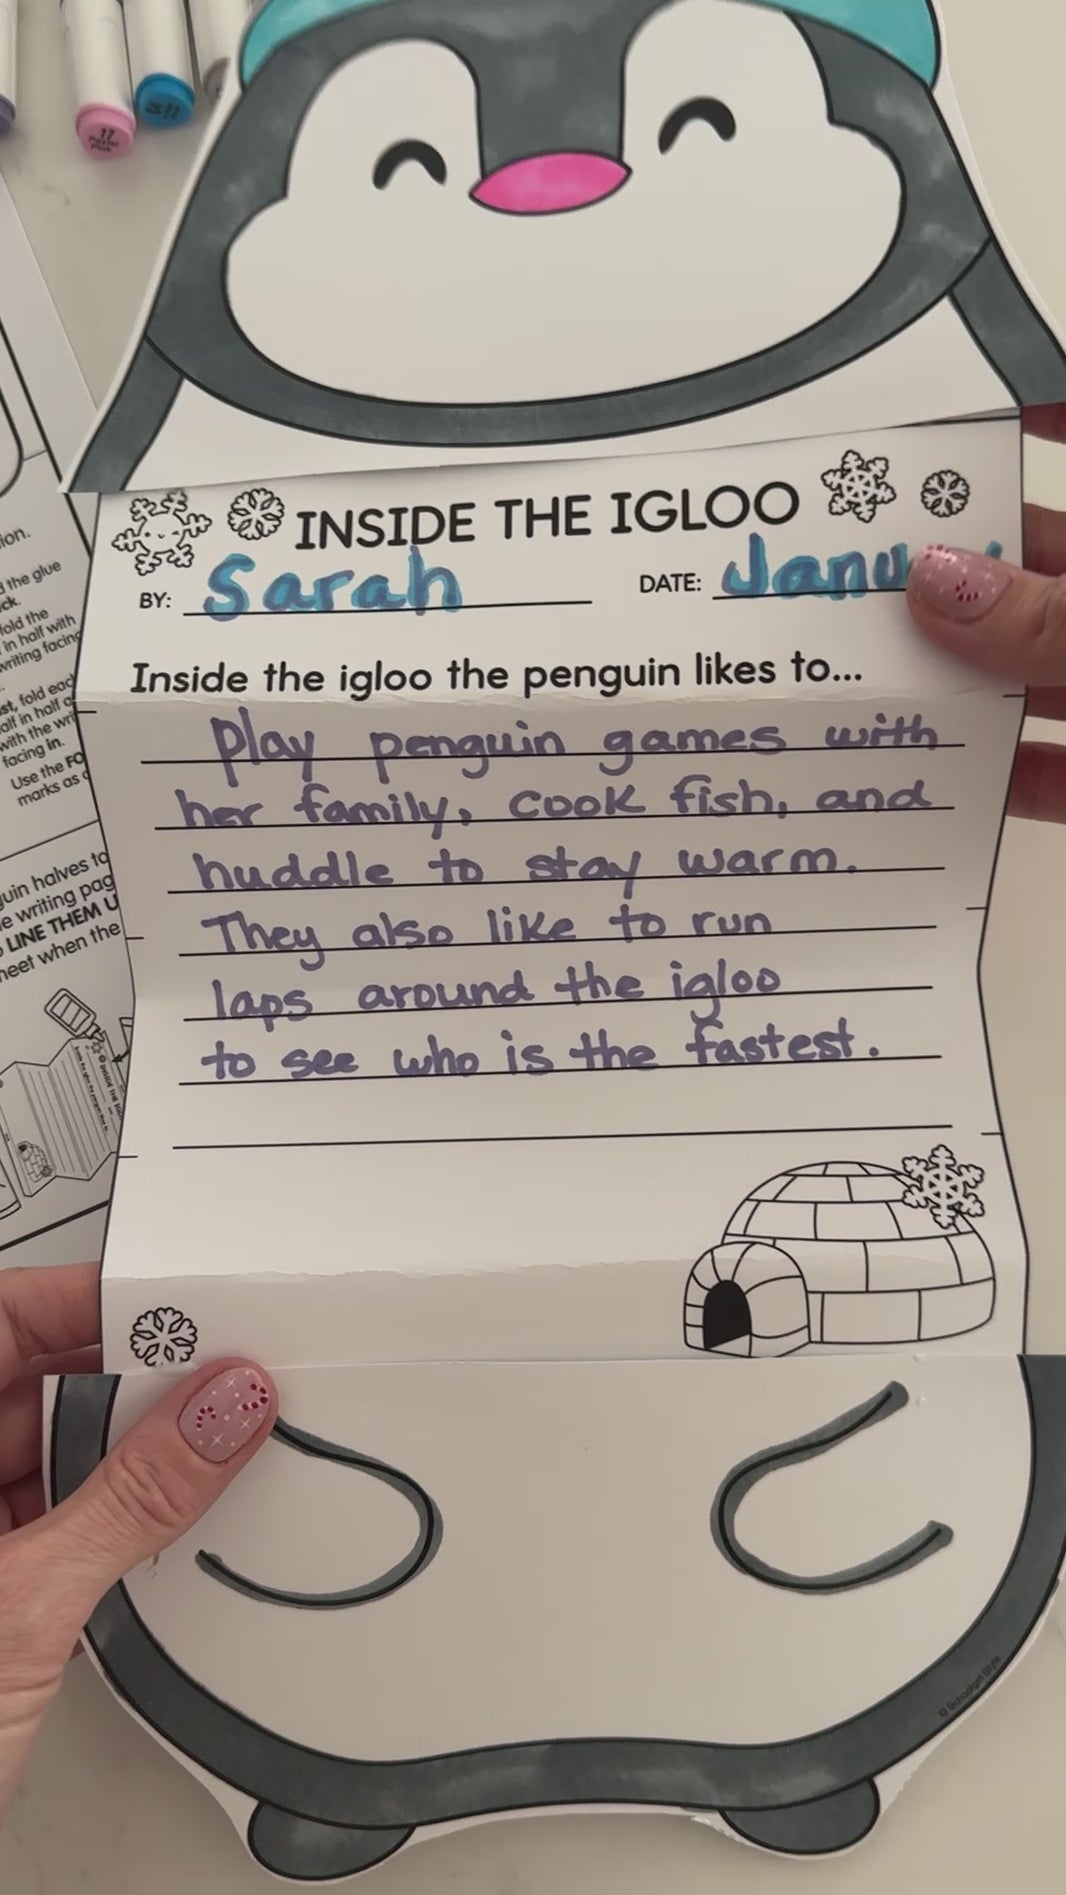 17
Pastel
Pink
INSIDE THE IGLOO
BY: Sarah DATE: Janu
Inside the igloo the penguin likes to...
Play penguin games with
her family, cook fish, and
huddle to stay warm.
They also like to run
laps around the igloo
to see who is the fastest.
ion.
d the glue
ck.
fold the
in half with
writing facing
st, fold each
alf in half a
with the wri
facing in.
Use the FO
marks as
guin halves to
e writing pag
LINE THEM U
heet when the
© Schoolgirl Style